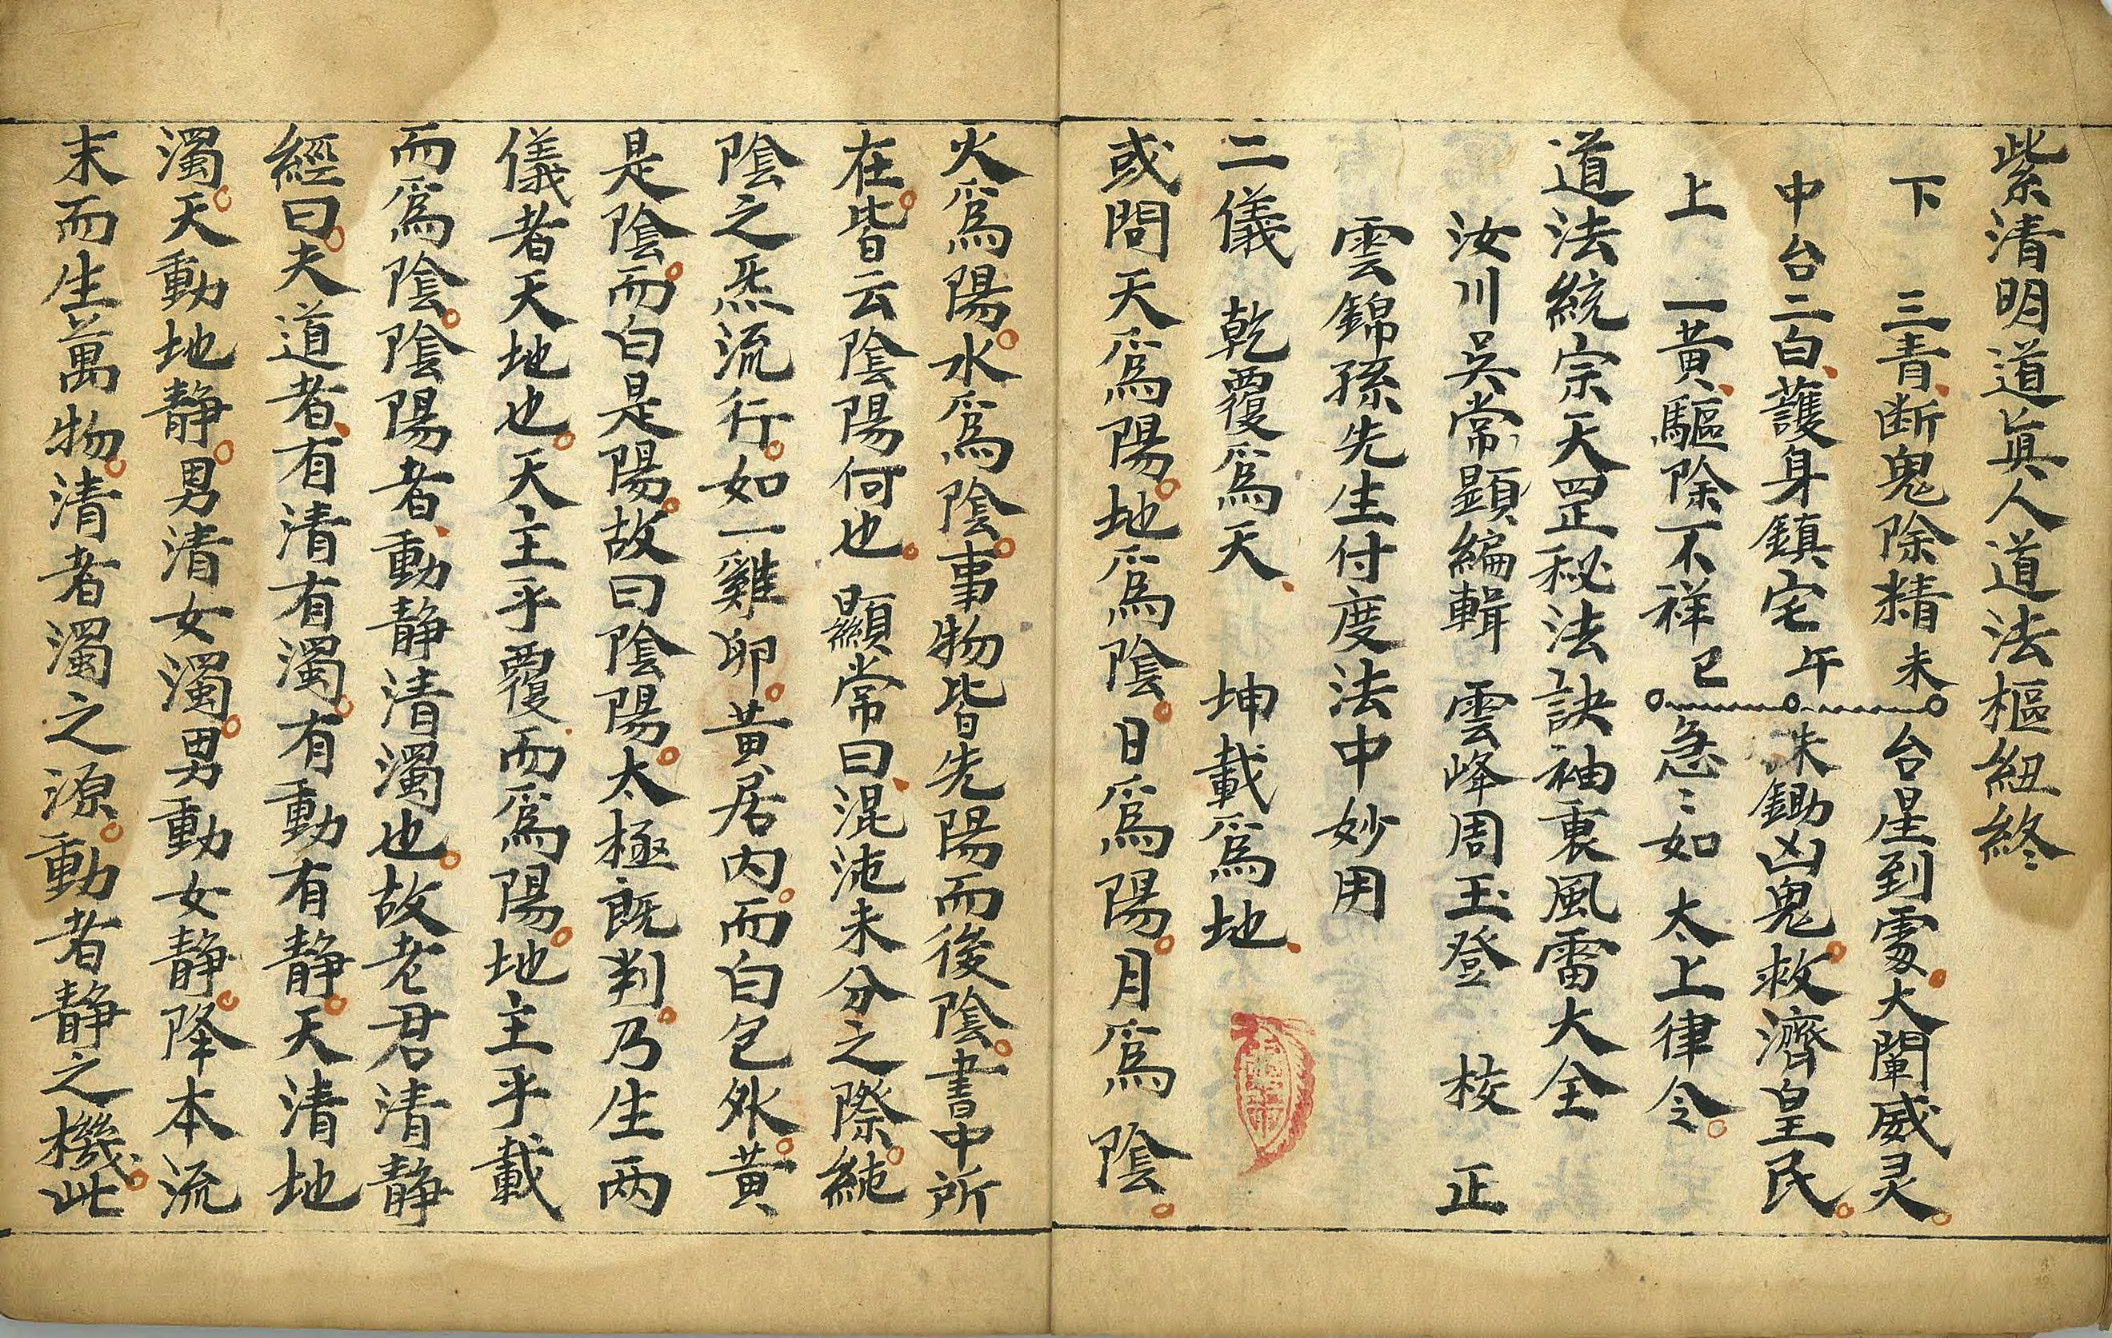 紫清明道眞人道法樞紐終
下 三青、断鬼除精 未 台星到䖏。大闡威灵。
中台二白、護身鎮宅 午 朱鋤凶鬼。救濟皇民。
上 一黃、驅除不祥 巳 急〻如 太上律令。
道法統宗天罡秘法訣袖裏風雷大全
汝川吳常顕編輯 雲峰周玉登 校 正
雲錦孫先生付度法中妙用
二儀 乾覆爲天、 坤載爲地、
或問天爲陽。地爲陰。日爲陽。月爲陰。
火爲陽。水爲陰。事物皆先陽而後陰。書中所
在。皆云陰陽何也。顯常曰、混沌未分之際。純
陰之炁流行。如一雞卵。黃居内。而白包外。黃
是陰。而白是陽。故曰陰陽。太極既判。乃生两
儀者天地也。天主乎覆、而爲陽。地主乎載
而爲陰。陰陽者、動静清濁也。故老君清静
經曰。夫道者、有清有濁。有動有静。天清地
濁。天動地静。男清女濁。男動女静。降本流
末而生萬物。清者濁之源。動者静之機。此